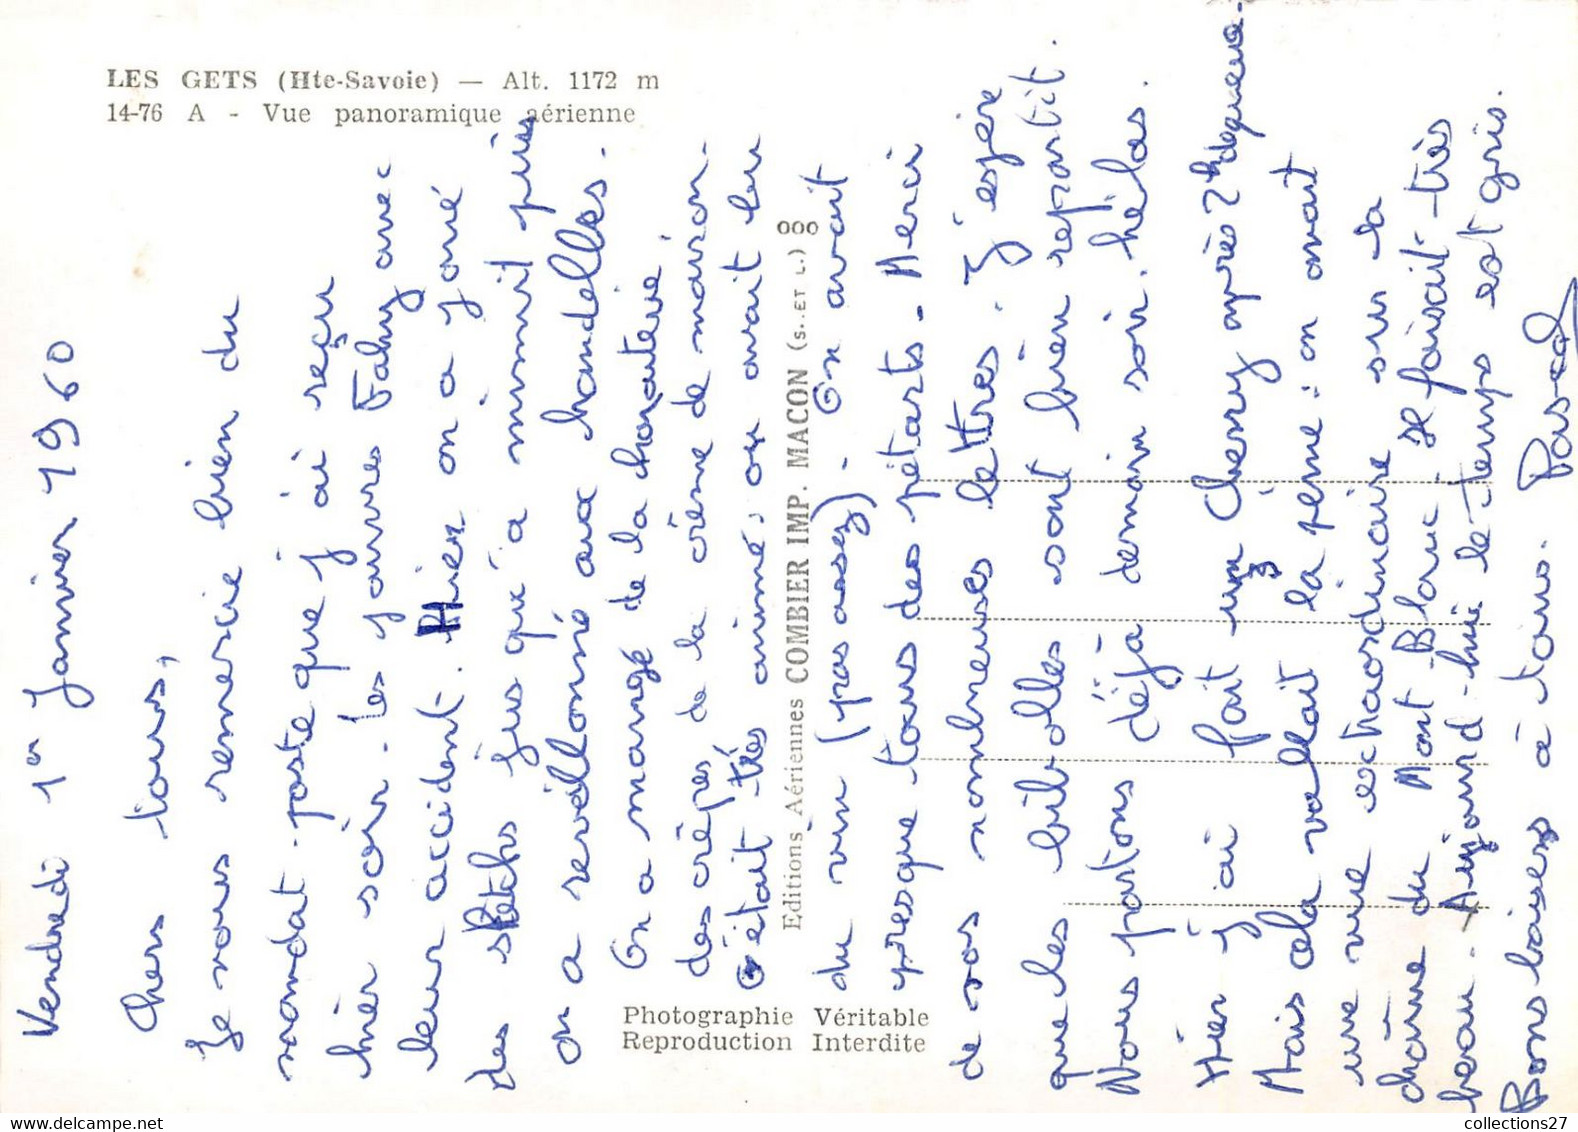 LES GETS (Hte-Savoie) — Alt. 1172 m
14-76 A - Vue panoramique aérienne
Vendredi 1er Janvier 1960
Chers tous,
Je vous remercie bien du
mandat-poste que j'ai reçu
hier soir. Les pauvres Fahy avec
leur accident. Hier on a joué
des sketchs jusqu'à minuit puis
on a reveillonné aux chandelles.
On a mangé de la
des crêpes de la crème de marron.
C'était très animé, on avait bu
du vin (pas assez). On avait
presque tous des pétards. Merci
de vos nombreuses lettres. J'espère
que les bibolles sont bien reparti.
Nous partons déjà demain soir, hélas.
Hier j'ai fait un Chevry après 2h de queue.
Mais cela vallait la peine : on avait
une vue extraordinaire sur la
chaîne du Mont-Blanc. Il faisait très
beau. Aujourd-hui le temps est gris.
Bons baisers à tous. Pascal
Editions Aériennes COMBIER IMP. MACON (S. ET L.) ooo
Photographie Véritable
Reproduction Interdite
collections27